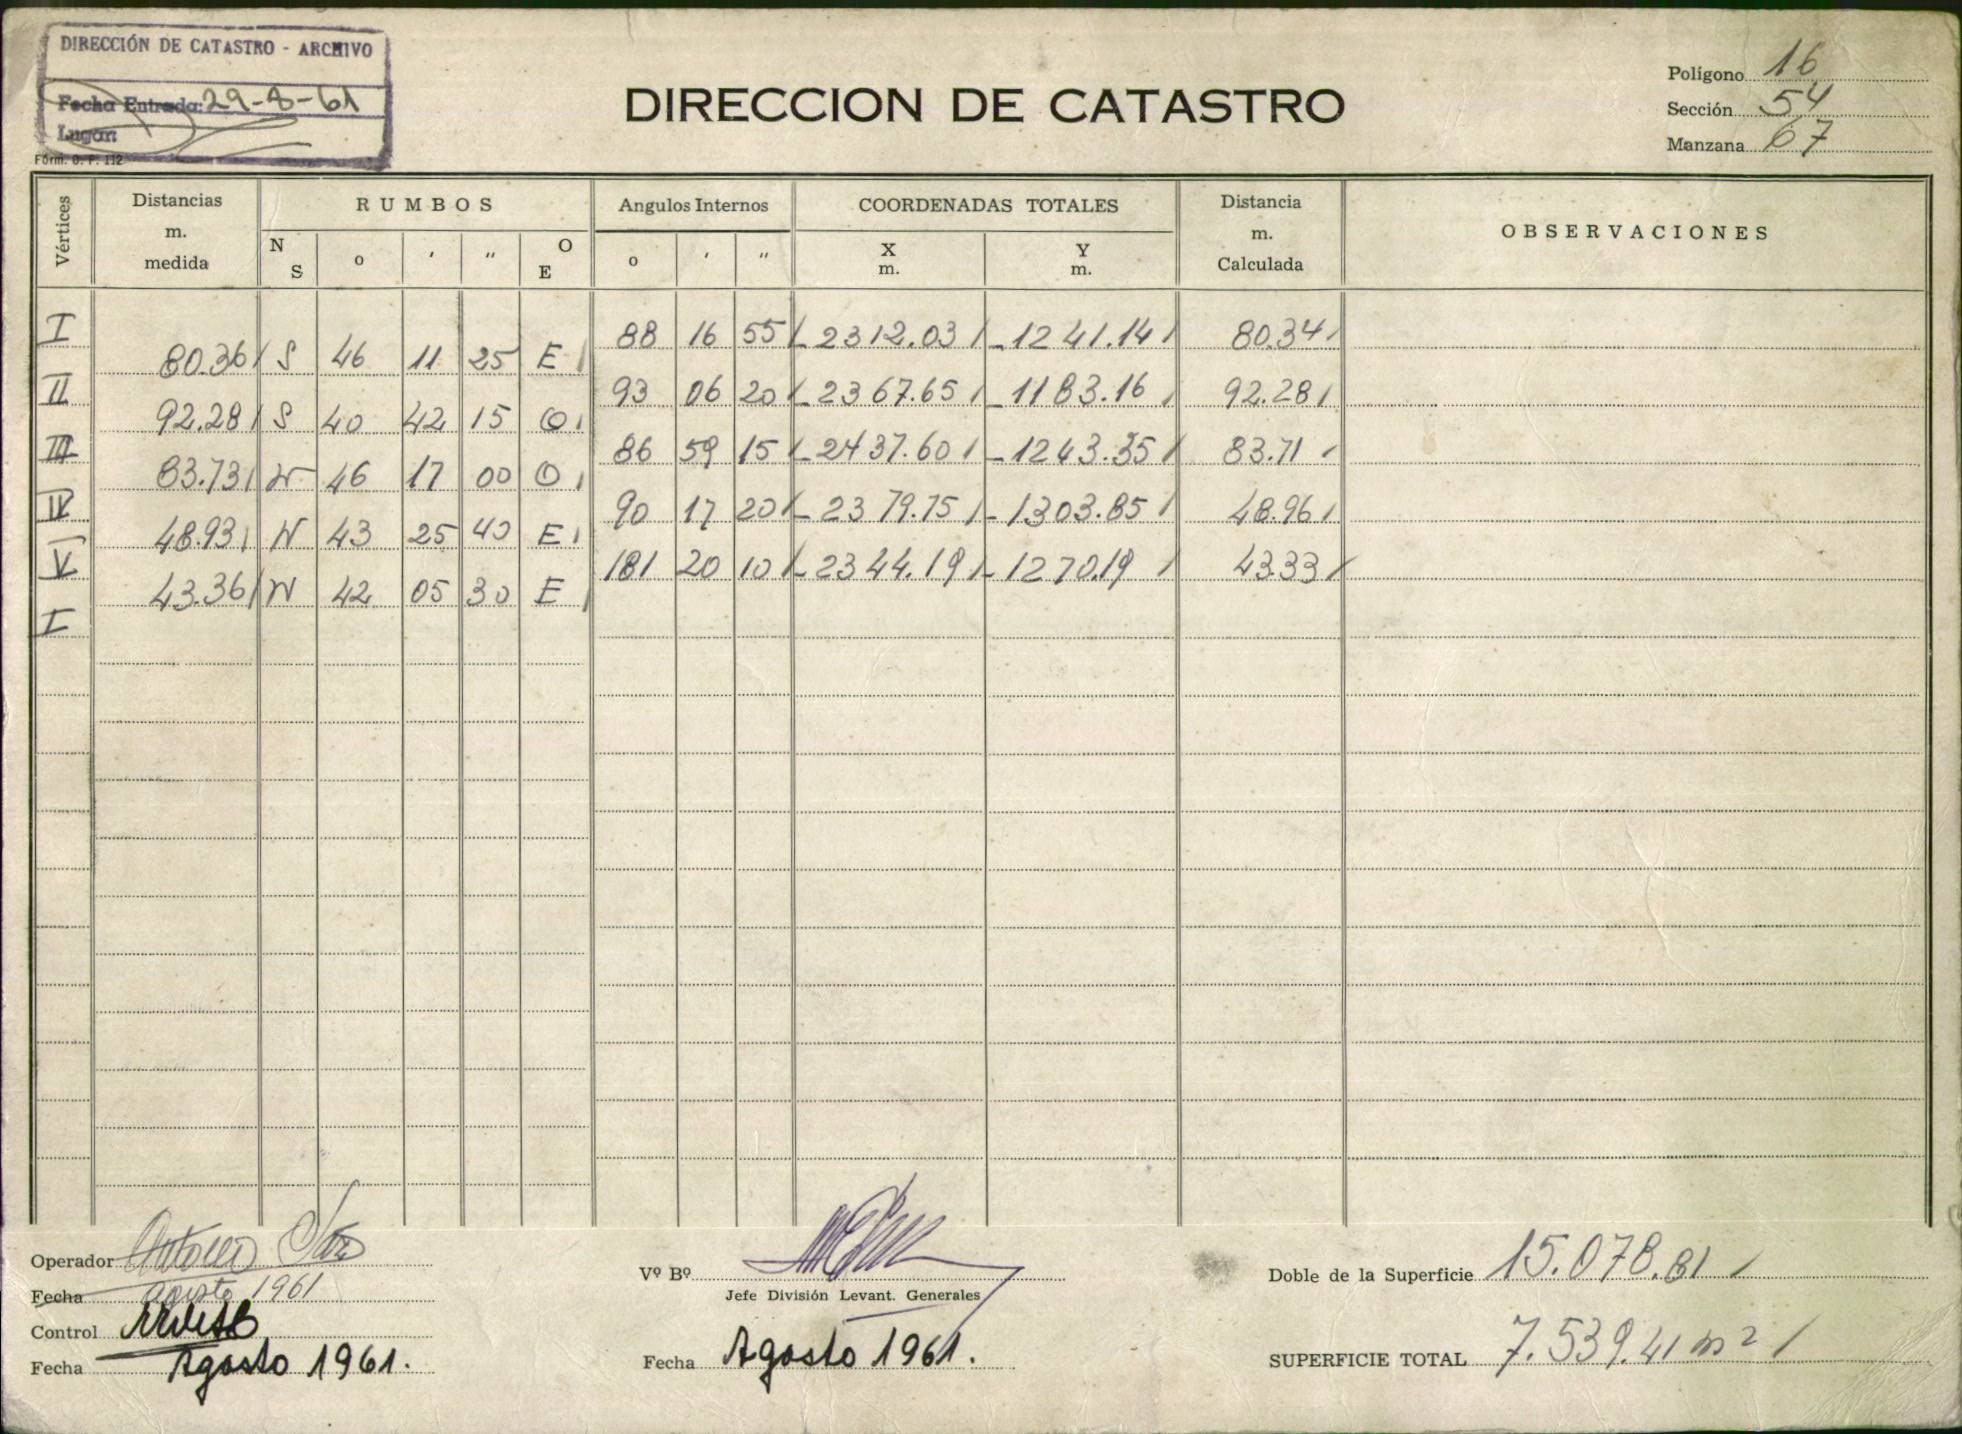 DIRECCIÓN DE CATASTRO - ARCHIVO
Fecha Entrada: 29-8-61
Lugar
Form. O. P. 112
DIRECCION DE CATASTRO
Polígono 16
Sección 54
Manzana 67
Vértices Distancias m. medida RUMBOS N S o ' " O E Angulos Internos o ' " COORDENADAS TOTALES X m. Y m. Distancia m. Calculada OBSERVACIONES
I 88 16 55 -2312.03 -1241.14 80.34
80.36 S 46 11 25 E
II 93 06 20 -2367.65 -1183.16 92.28
92.28 S 40 42 15 O
III 86 59 15 -2437.60 -1243.35 83.71
83.73 N 46 17 00 O
IV 90 17 20 -2379.75 -1303.85 48.96
48.93 N 43 25 40 E
V 181 20 10 -2344.19 -1270.19 43.33
43.36 N 42 05 30 E
I
Operador Antonio
Fecha agosto 1961
Control
Fecha Agosto 1961.
Vº Bº
Jefe División Levant. Generales
Fecha Agosto 1961.
Doble de la Superficie 15.078.81
SUPERFICIE TOTAL 7.539.41 m2